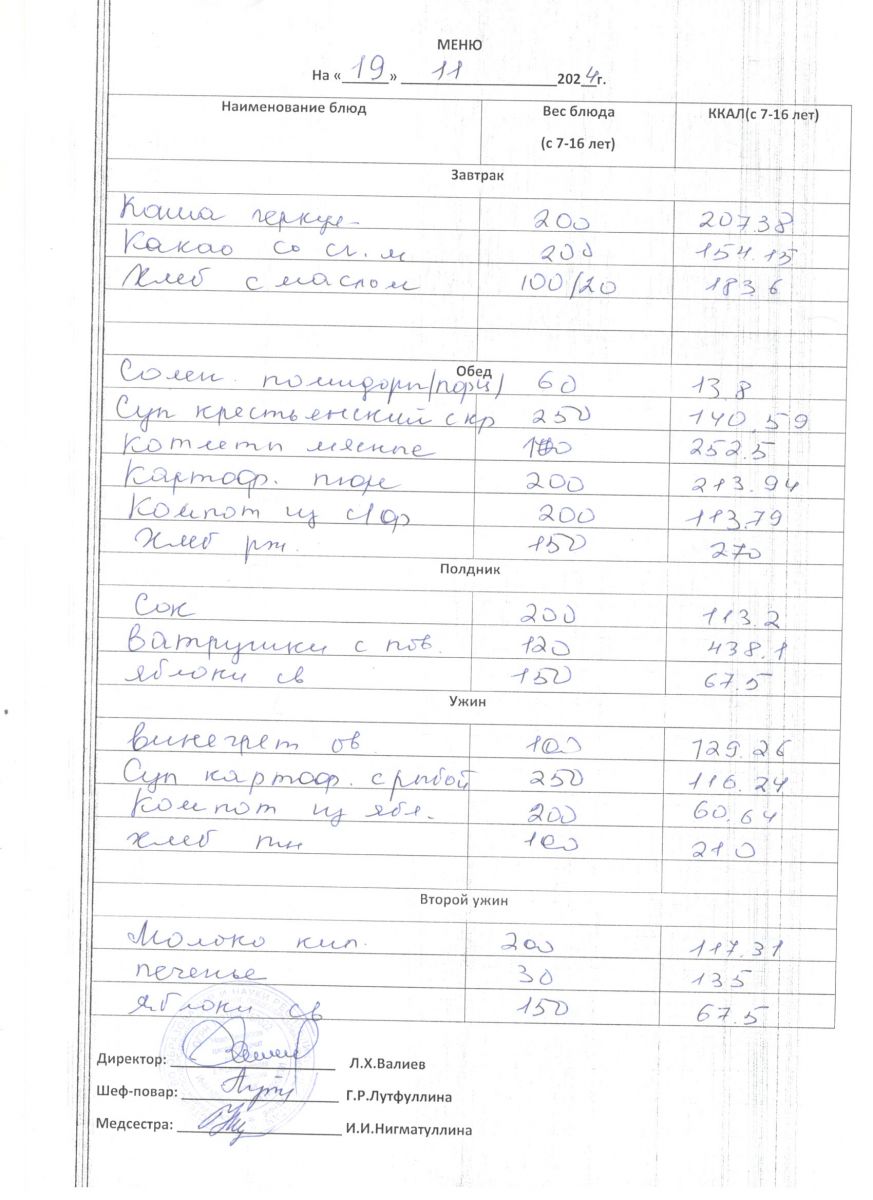 МЕНЮ
На « 19 » 11 2024г.
Наименование блюд Вес блюда (с 7-16 лет) ККАЛ(с 7-16 лет)
Завтрак
Каша геркул- 200 207.38
Какао со сг. м 200 154.15
Хлеб с маслом 100/20 183.6
Обед
Солен. помидоры/порц) 60 13,8
Суп крестьенский с кр 250 140,59
Котлеты мясные 100 252.5
Картоф. пюре 200 213.94
Компот из с/ф 200 113,79
Хлеб рж. 150 270
Полдник
Сок 200 113.2
Ватрушки с пов. 120 438.1
яблоки св 150 67.5
Ужин
Винегрет ов 100 129.26
Суп картоф. с рыбой 250 116.24
Компот из ябл. 200 60.64
хлеб пш 100 210
Второй ужин
Молоко кип. 200 117.31
печенье 30 135
яблоки св 150 67.5
Директор: Л.Х.Валиев
Шеф-повар: Г.Р.Лутфуллина
Медсестра: И.И.Нигматуллина